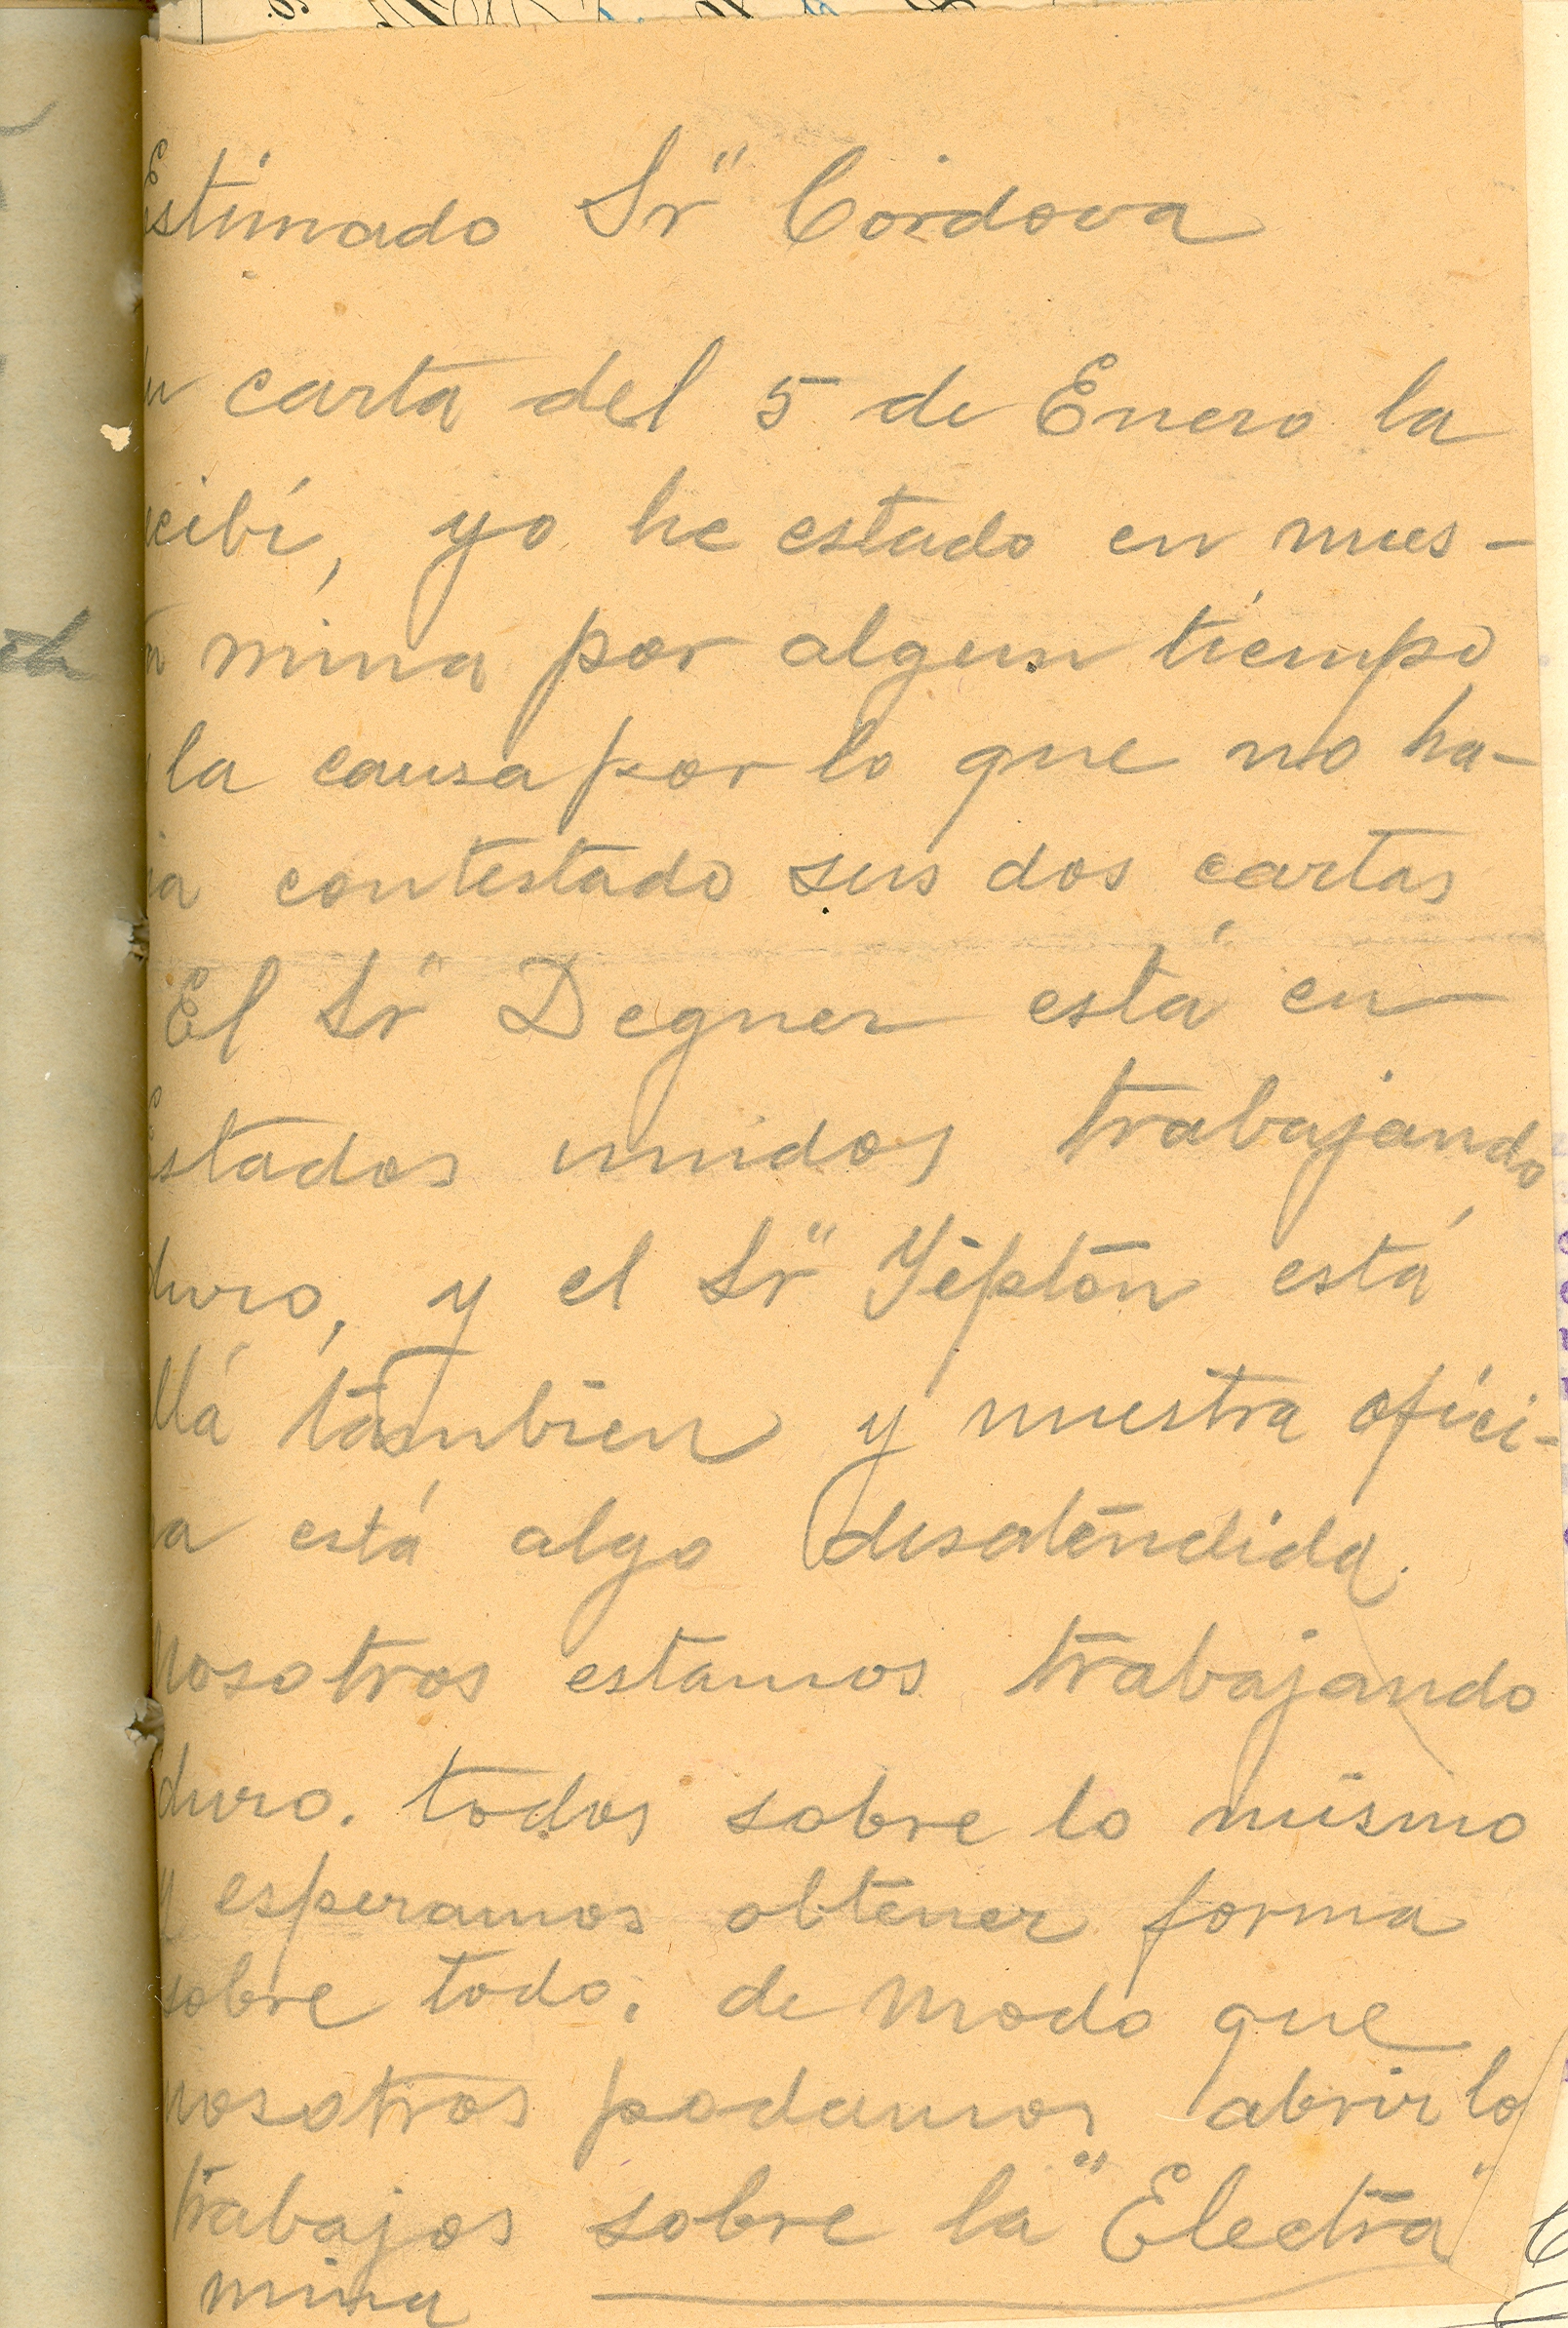 Estimado Sr" Cordova
carta del 5 de Enero la
cibí, yo he estado en nues-
mina por algun tiempo
la causa por lo que no ha-
ia contestado sus dos cartas
El Sr" Degner está en
Estados unidos trabajando
duro, y el Sr" Yepton está
llá tambien y nuestra ofici-
na está algo desatendida.
Nosotros estamos trabajando
duro. todos sobre lo mismo
y esperamos obtener forma
sobre todo. de modo que
nosotros podamos abrir lo
trabajos sobre la "Electra"
mina